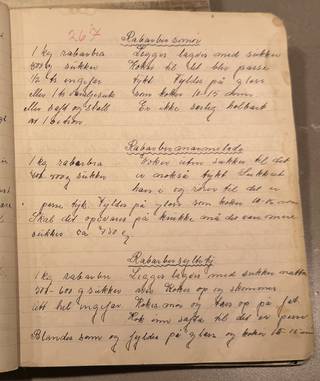 267
Rabarbrasmör
1 kg rabarbra Legges lagvis med sukker
400 g sukker Kokes til det blir passe
1/2 ts ingefær tykt Fylles på glass
eller 1 ts vaniljesuk som kokes 10-15 min
eller saft og skall Er ikke særlig holbart
av 1 sitron
Rabarbramarmelade
1 kg rabarbra Kokes uten sukker til det
700 g sukker er nokså tykt Sukkeret
has i og röres til det er
pene tyk. Fylles på glass som kokes 10-15 min
Skal det opvares på krukke må det være mere
sukker ca 750 g
Rabarbrasyltetöy
1 kg rabarbra Legges lagvis med sukker natten
500-600 g sukker over Kokes op og skummes
litt hel ingefær Kokes mör og tas op på fat.
Kok inn safta til det er pene
Blandes sam og fylles på glass og kokes 10-15 min